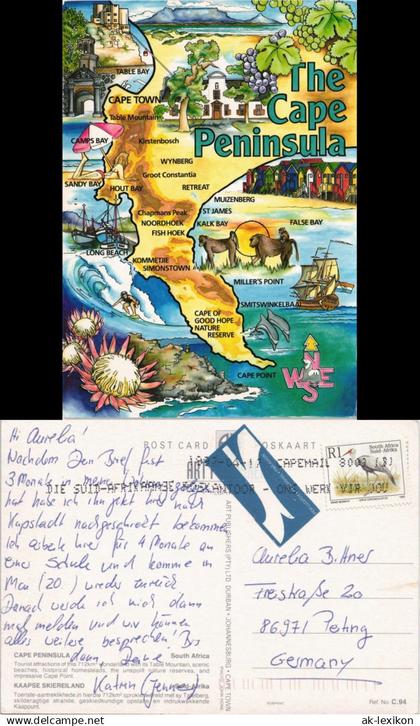 The
Cape
Peninsula
TABLE BAY
CAPE TOWN
Table Mountain
CAMPS BAY
Kirstenbosch
WYNBERG
Groot Constantia
SANDY BAY
HOUT BAY
RETREAT
MUIZENBERG
Chapmans Peak
ST JAMES
NOORDHOEK
KALK BAY
FALSE BAY
FISH HOEK
LONG BEACH
KOMMETJIE
SIMONSTOWN
MILLER'S POINT
SMITSWINKELBAAI
CAPE OF
GOOD HOPE
NATURE
RESERVE
CAPE POINT
N
W E
S
POST CARD
POSKAART
1997-04-17 CAPEMAIL 8000
DIE SUID-AFRIKAANSE POSKANTOOR - ONS WERK VIR JOU
R1
South Africa
Suid-Afrika
Hi Aurelia!
Nachdem Dein Brief fast
3 Monate in
hat habe ich ihn jetzt hier nach
Kapstadt nachgeschickt bekommen
Ich arbeite hier für 4 Monate an
einer Schule und komme im
Mai (20.) wieder zurück
Danach werde ich mich dann
mal melden und wir können
alles weitere besprechen! Bis
dann, Deine
Katrin
Aurelia Bittner
20
86971 Peiting
Germany
ART PUBLISHERS (PTY) LTD DURBAN • JOHANNESBURG • CAPE TOWN
CAPE PENINSULA South Africa
Tourist attractions of this 712km² wonderland with its Table Mountain, scenic
beaches, historical homesteads, the unspoilt nature reserves, and
impressive Cape Point.
KAAPSE SKIEREILAND
Toeriste-aantreklikhede in hierdie 712km² sprokieswêreld met sy Tafelberg,
skilderagtige strande, geskiedkundige opstalle, onbedorwe natuurreservate en indrukwekkende
Kaappunt.
Ref. No: C.94
www.ak-lexikon.de
ak-lexikon